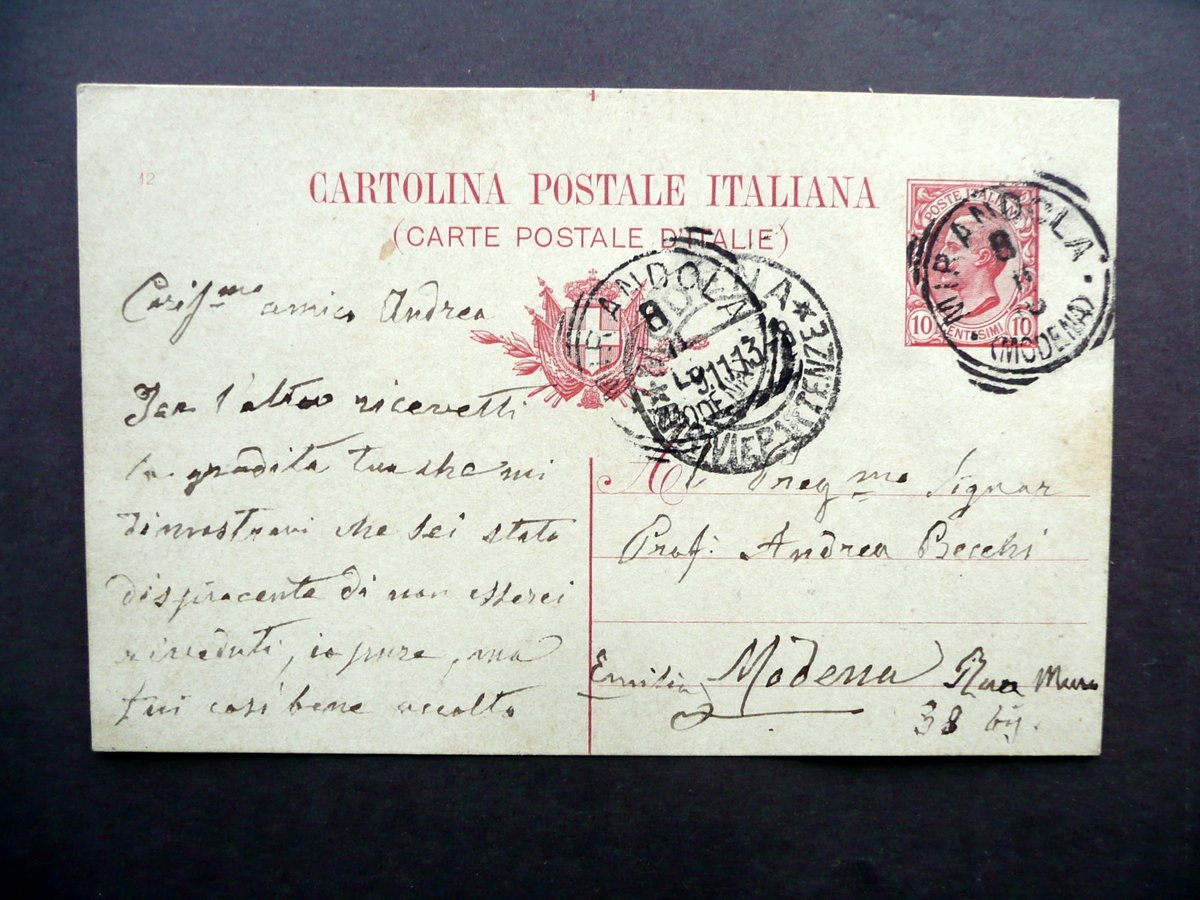 12
CARTOLINA POSTALE ITALIANA
(CARTE POSTALE D'ITALIE)
POSTE ITALIANE
10 CENTESIMI 10
MIRANDOLA
8
11
13
(MODENA)
MIRANDOLA
8
11
13
(MODENA)
MODENA
9.11.13
ARRIVI E PARTENZE
Cariss.mo amico Andrea
Ier l'altro ricevetti
la gradita tua che mi
dimostravi che sei stato
dispiacente di non esserci
riveduti, io pure, ma
fui così bene accolto
Al Preg.mo Signor
Prof. Andrea Becchi
Emilia Modena Rua Muro
38 bis.